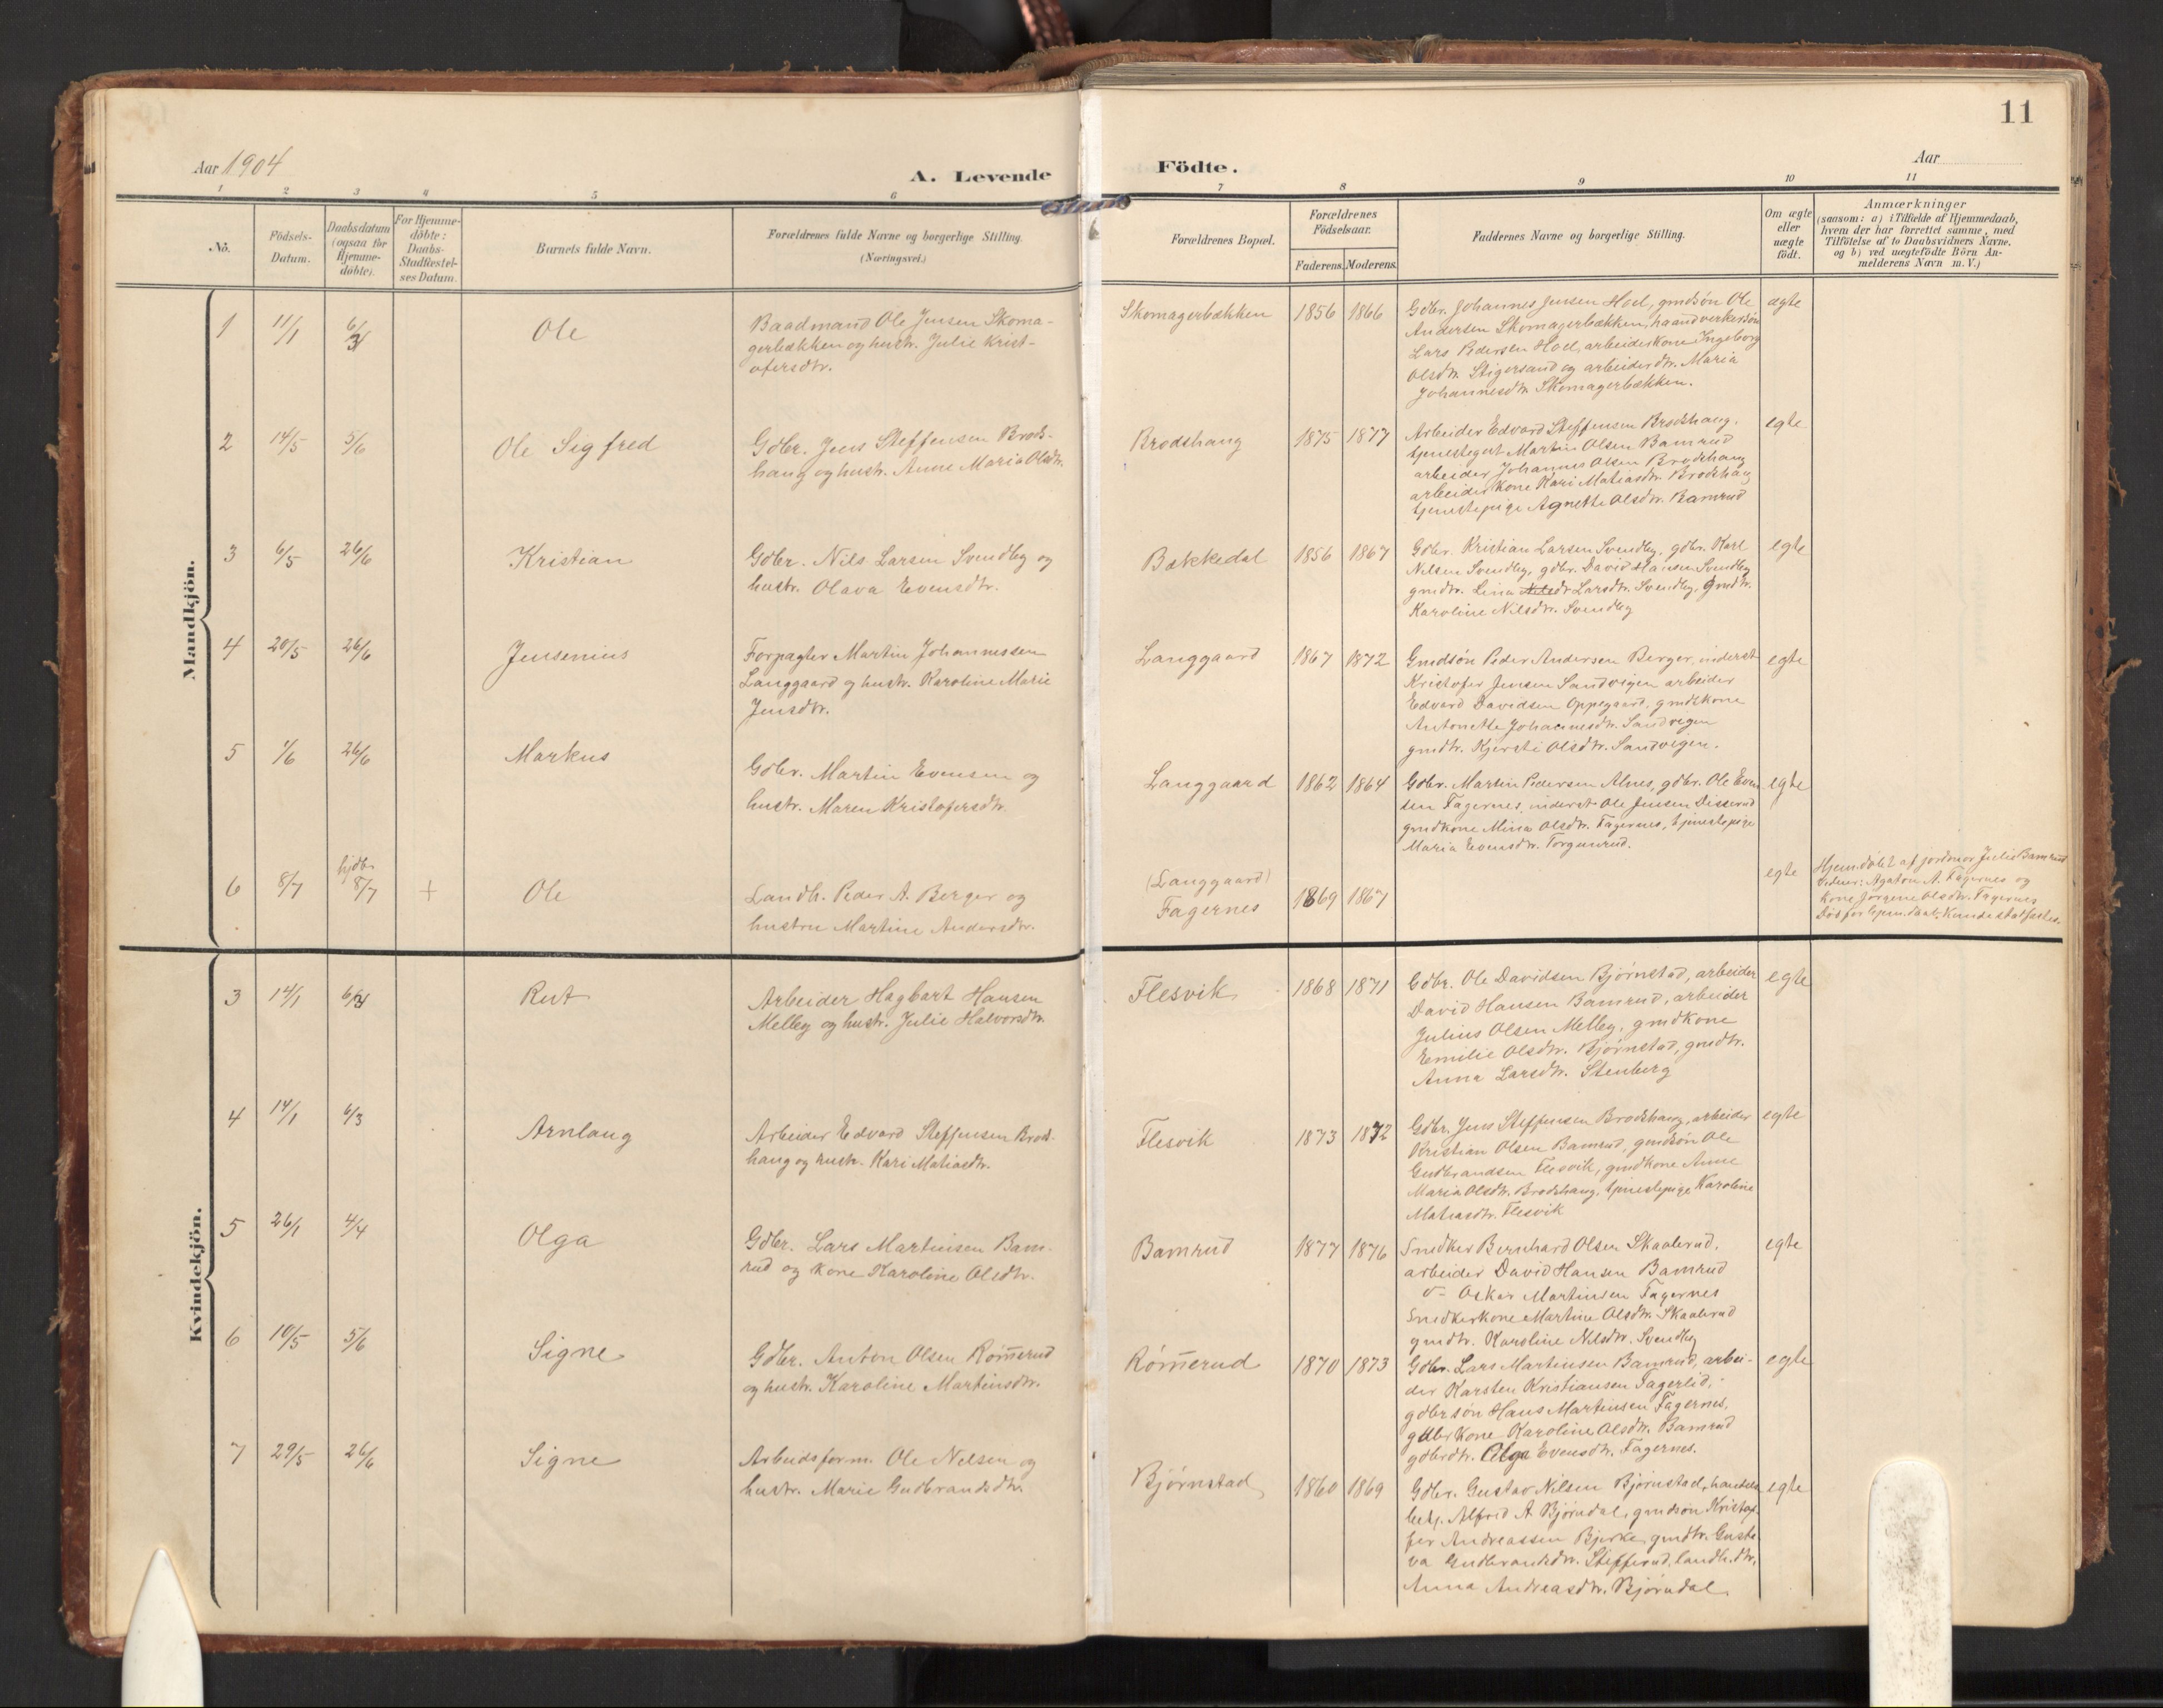 11
Aar 1904
A. Levende
Födte.
Aar
1 2 3 4 5 6 7 8 9 10 11
No.
Födsels-
Datum.
Daabsdatum
(ogsaa for
Hjemme-
döbte).
For Hjemme-
döbte:
Daabs-
Stadfæstel-
ses Datum.
Barnets fulde Navn.
Forældrenes fulde Navne og borgerlige Stilling.
(Næringsvei.)
Forældrenes Bopæl.
Forældrenes
Födselsaar.
Faderens.
Moderens.
Faddernes Navne og borgerlige Stilling.
Om ægte
eller
uægte
födt.
Anmærkninger
(saasom: a) i Tilfælde af Hjemmedaab,
hvem der har forrettet samme, med
Tilföielse af to Daabsvidners Navne,
og b) ved uægtefödte Börn An-
melderens Navn m. V.)
Mandkjön.
1 11/1 6/3 Ole
Baadmand Ole Jensen Skoma-
gerbækken og hustr. Julie Krist-
ofersdtr.
Skomagerbækken 1856 1866
Gdbr. Johannes Jensen Hoel, gmdsøn Ole
Andersen Skomagerbækken, haandverkersøn
Lars Pedersen Hoel, arbeiderkone Ingeborg
Olsdtr. Stigersand og arbeiderdtr. Maria
Johannesdtr. Skomagerbækken.
ægte
2 14/5 5/6 Ole Sigfred
Gdbr. Jens Steffensen Brods-
haug og hustr. Anne Maria Olsdtr.
Brodshaug 1875 1877
Arbeider Edvard Steffensen Brodshaug,
tjenestegut Martin Olsen Bamrud
arbeider Johannes Olsen Brodshaug
arbeiderkone Kari Matiasdtr. Brodshaug
tjenestepige Agnethe Olsdtr. Bamrud
egte
3 6/5 26/6 Kristian
Gdbr. Nils Larsen Svendby og
hustr. Olava Evensdtr.
Bækkedal 1856 1867
Gdbr. Kristian Larsen Svendby, gdbr. Karl
Nilsen Svendby, gdbr. David Hansen Svendby
gmdtr. Lina Larsdtr. Svendby, gmdtr.
Karoline Nilsdtr. Svendby
egte
4 20/5 26/6 Jensenius
Forpagter Martin Johannessen
Langgaard og hustr. Karoline Marie
Jensdtr.
Langgaard 1867 1872
Gmdsøn Peder Andersen Berger, inderst
Kristofer Jensen Sandvigen arbeider
Edvard Davidsen Oppegaard, gmdskone
Antonette Johannesdtr. Sandvigen
gmdtr. Kjersti Olsdtr. Sandvigen.
egte
5 1/6 26/6 Markus
Gdbr. Martin Evensen og
hustr. Maren Kristofersdtr.
Langgaard 1862 1864
Gdbr. Martin Pedersen Alnes, gdbr. Ole Even
sen Fagernes, inderst Ole Jensen Disserud
gmdkone Mina Olsdtr. Fagernes, tjenestepige
Maria Evensdtr. Torgunrud.
egte
6 8/7 hjdbr. 8/7 + Ole
Landh. Peder A. Berger og
hustru Martine Andersdtr.
(Langgaard)
Fagernes 1869 1867
egte
Hjemdøbt af jordmor Julie Bamrud
Vidner: Agaton A. Fagernes og
Kone Jørgine Olsdtr. Fagernes
Død før hjem.daab. Kunde stadfæstes.
Kvindekjön.
3 14/1 6/3 Rut
Arbeider Hagbart Hansen
Melleg og hustr. Julie Halvorsdtr.
Flesvik 1868 1871
Gdbr. Ole Davidsen Bjørnstad, arbeider
David Hansen Bamrud, arbeider
Julius Olsen Melleg, gmdkone
Emilie Olsdtr. Bjørnstad, gmdtr.
Anna Larsdtr. Stenberg
egte
4 14/1 6/3 Arnlaug
Arbeider Edvard Steffensen Brods-
haug og hustr. Kari Matiasdtr.
Flesvik 1873 1872
Gdbr. Jens Steffensen Brodshaug, arbeider
Kristian Olsen Bamrud, gmdsøn Ole
Gudbrandsen Flesvik, gmdkone Anne
Maria Olsdtr. Brodshaug, tjenestepige Karoline
Matiasdtr. Flesvik
egte
5 26/1 4/4 Olga
Gdbr. Lars Martinsen Bam-
rud og kone Karoline Olsdtr.
Bamrud 1877 1876
Snedker Bernhard Olsen Skaalerud,
arbeider David Hansen Bamrud
Oskar Martinsen Fagernes
Snedkerkone Martine Olsdtr. Skaalerud
gmdtr. Karoline Nilsdtr. Svendby
egte
6 10/5 5/6 Signe
Gdbr. Anton Olsen Røm̄erud
og hustr. Karoline Martinsdtr.
Røm̄erud 1870 1873
Gdbr. Lars Martinsen Bamrud, arbei-
der Karsten Kristiansen Fagerlid,
gdbrsøn Hans Martinsen Fagernes,
gdbrkone Karoline Olsdtr. Bamrud
gdbrdtr. Olga Evensdtr. Fagernes.
egte
7 29/5 26/6 Signe
Arbeidsform. Ole Nelsen og
hustr. Marie Gudbrandsdtr.
Bjørnstad 1860 1869
Gdbr. Gustav Nilsen Bjørnstad, handels
betj. Alfred A. Bjørndal, gmdsøn Kristof-
fer Andreassen Bjerke, gmdtr. Gusta-
va Gudbrandsdtr. Stefferud, landh.dtr.
Anna Andreasdtr. Bjørndal.
egte